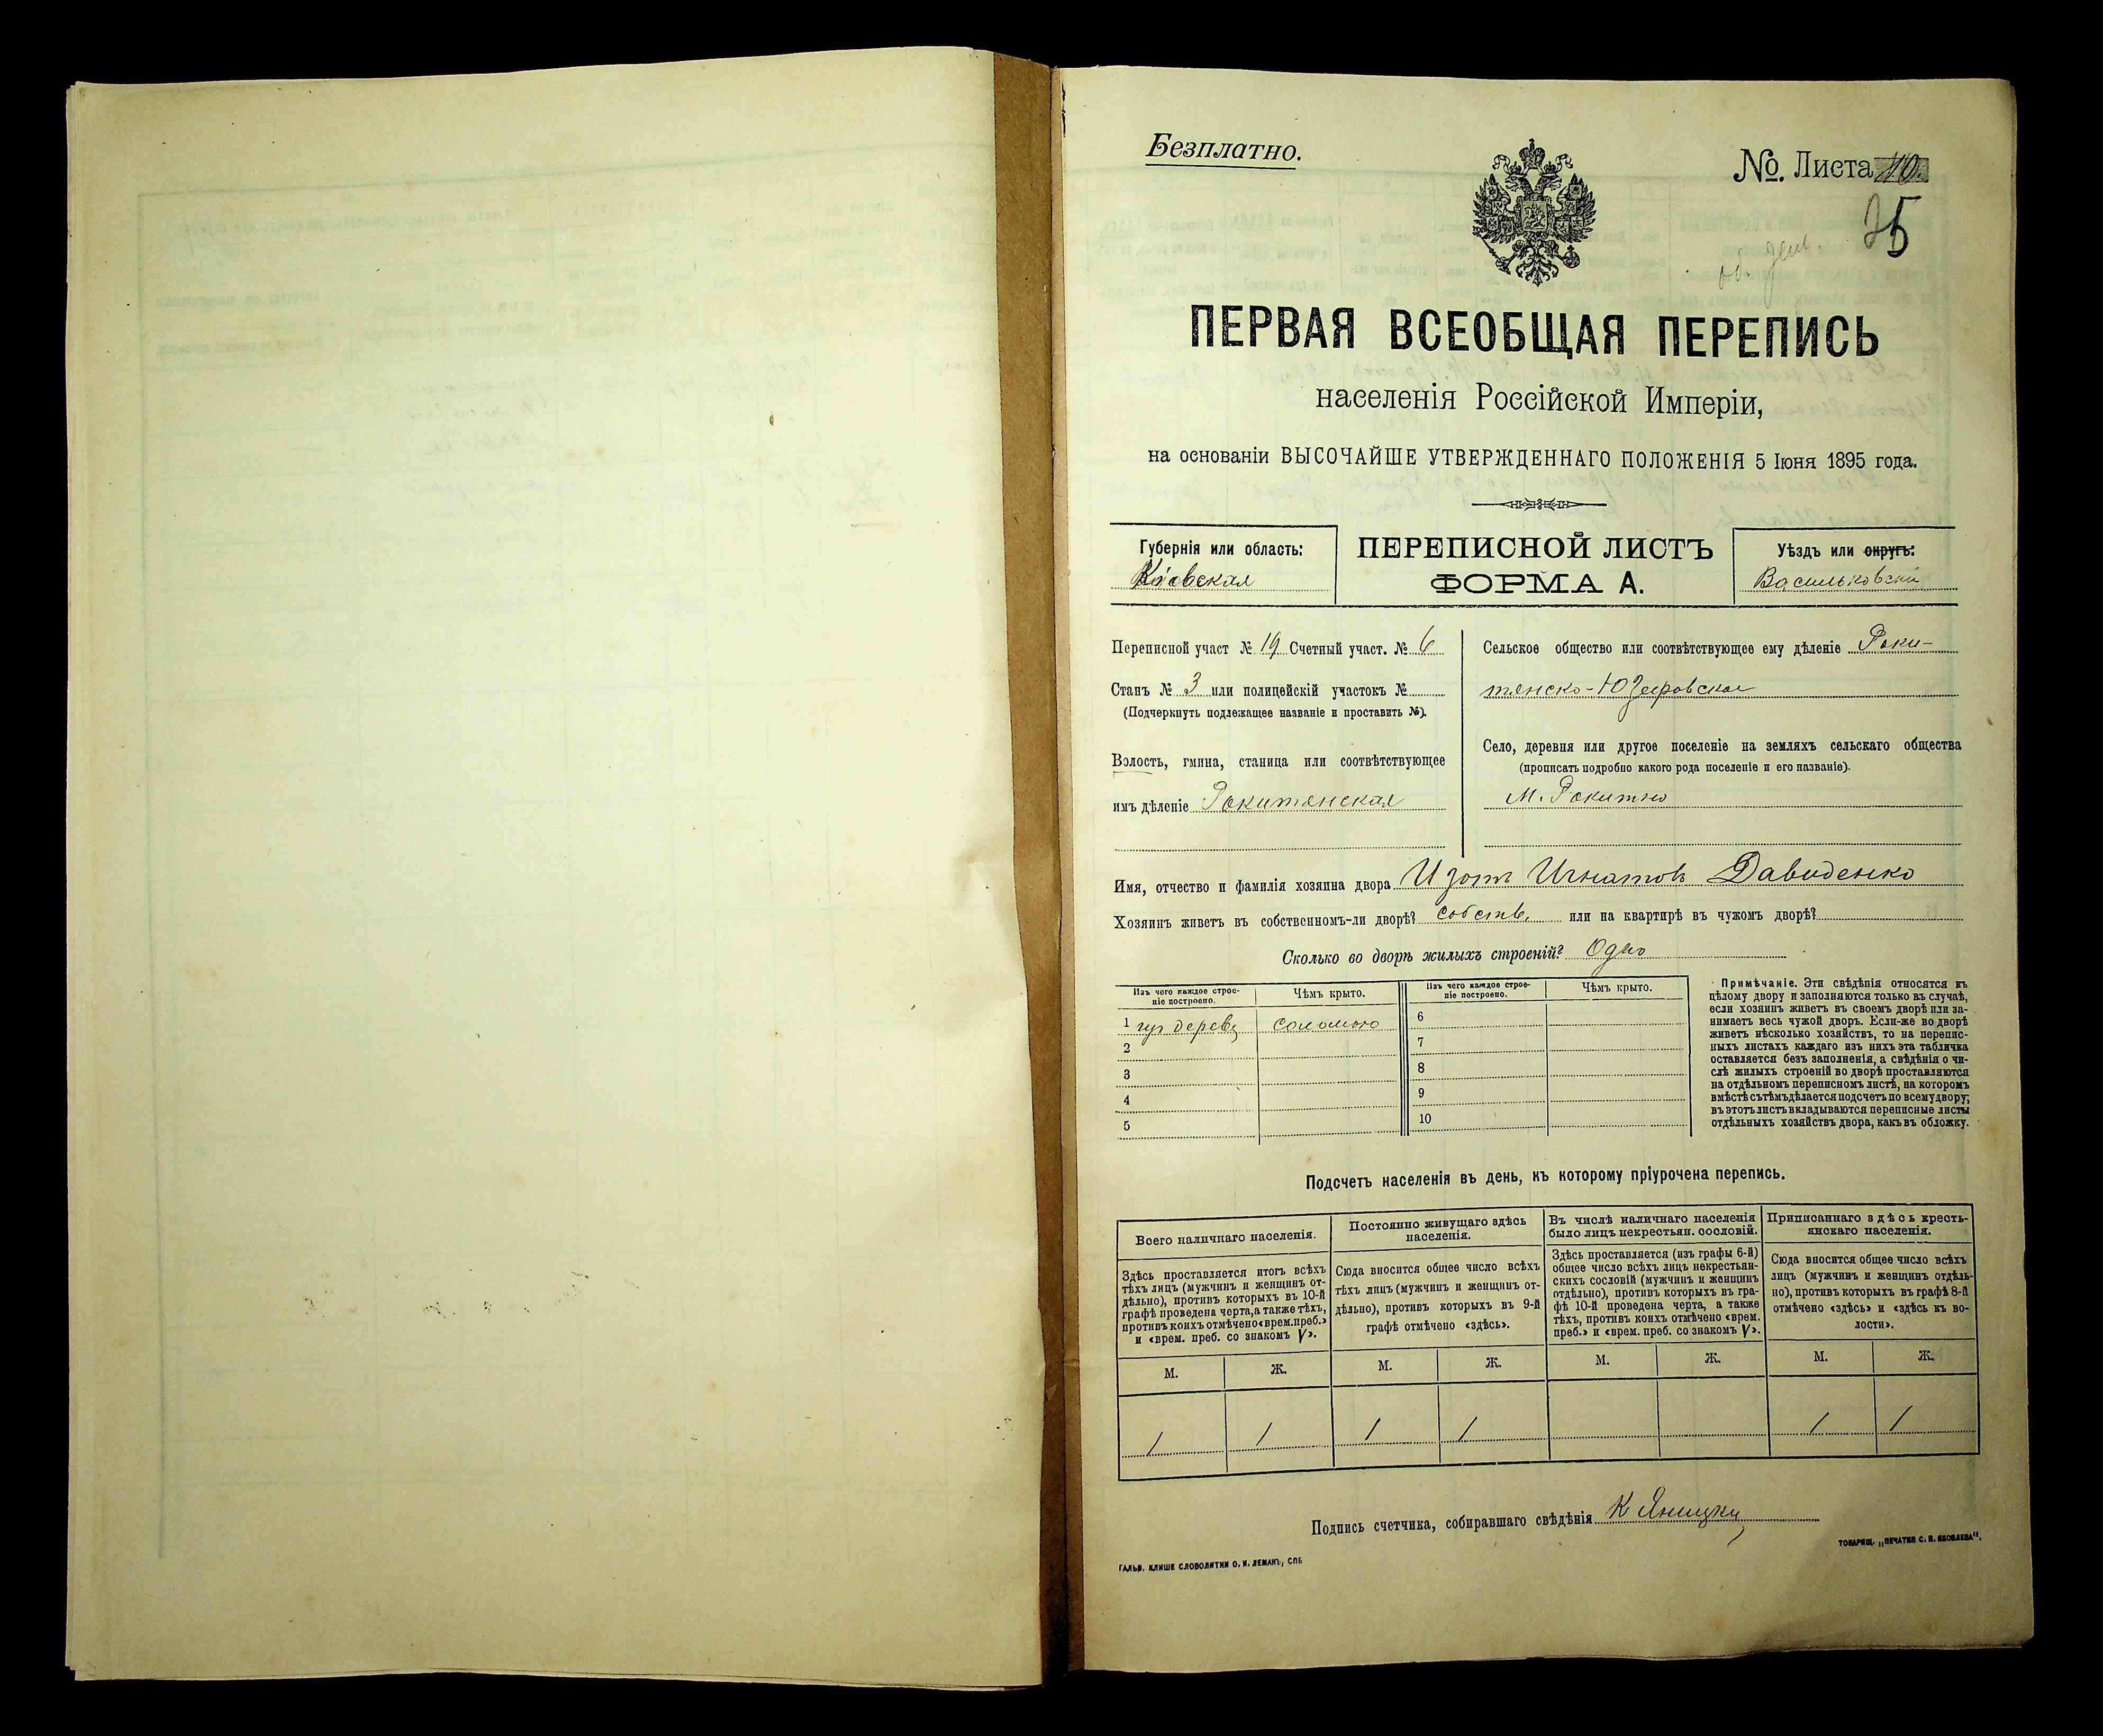 Безплатно.
№. Листа
25
ПЕРВАЯ ВСЕОБЩАЯ ПЕРЕПИСЬ
населенія Россійской Имперіи,
на основаніи ВЫСОЧАЙШЕ УТВЕРЖДЕННАГО ПОЛОЖЕНІЯ 5 Іюня 1895 года.
Губернія или область:
Кіевская
ПЕРЕПИСНОЙ ЛИСТЪ
ФОРМА А.
Уѣздъ или округъ:
Васильковскій
Переписной участ № 19 Счетный участ. № 6
Станъ № 3 или полицейскій участокъ №
(Подчеркнуть подлежащее названіе и проставить №).
Волость, гмина, станица или соотвѣтствующее
имъ дѣленіе Рокитянская
Сельское общество или соотвѣтствующее ему дѣленіе Роки-
тянско-Юзефовское
Село, деревня или другое поселеніе на земляхъ сельскаго общества
(прописать подробно какого рода поселеніе и его названіе).
М. Рокитно
Имя, отчество и фамилія хозяина двора Изотъ Игнатовъ Давиденко
Хозяинъ живетъ въ собственномъ-ли дворѣ? собств. или на квартирѣ въ чужомъ дворѣ?
Сколько во дворѣ жилыхъ строеній? Одно
Изъ чего каждое строе-
ніе построено.
Чѣмъ крыто.
Изъ чего каждое строе-
ніе построено.
Чѣмъ крыто.
1 изъ дерева соломою
2
3
4
5
6
7
8
9
10
Примѣчаніе. Эти свѣдѣнія относятся къ
цѣлому двору и заполняются только въ случаѣ,
если хозяинъ живетъ въ своемъ дворѣ или за-
нимаетъ весь чужой дворъ. Если-же во дворѣ
живетъ нѣсколько хозяйствъ, то на перепис-
ныхъ листахъ каждаго изъ нихъ эта табличка
оставляется безъ заполненія, а свѣдѣнія о чи-
слѣ жилыхъ строеній во дворѣ проставляются
на отдѣльномъ переписномъ листѣ, на которомъ
вмѣстѣ сътѣмъ дѣлается подсчетъ по всему двору;
въ этотъ листъ вкладываются переписные листы
отдѣльныхъ хозяйствъ двора, какъ въ обложку.
Подсчетъ населенія въ день, къ которому пріурочена перепись.
Всего наличнаго населенія.
Здѣсь проставляется итогъ всѣхъ
тѣхъ лицъ (мужчинъ и женщинъ от-
дѣльно), противъ которыхъ въ 10-й
графѣ проведена черта, а также тѣхъ,
противъ коихъ отмѣчено «врем. преб.»
и «врем. преб. со знакомъ V».
Постоянно живущаго здѣсь
населенія.
Сюда вносится общее число всѣхъ
тѣхъ лицъ (мужчинъ и женщинъ от-
дѣльно), противъ которыхъ въ 9-й
графѣ отмѣчено «здѣсь».
Въ числѣ наличнаго населенія
было лицъ некрестьян. сословій.
Здѣсь проставляется (изъ графы 6-й)
общее число всѣхъ лицъ некрестьян-
скихъ сословій (мужчинъ и женщинъ
отдѣльно), противъ которыхъ въ гра-
фѣ 10-й проведена черта, а также
тѣхъ, противъ коихъ отмѣчено «врем.
преб.» и «врем. преб. со знакомъ V».
Приписаннаго здѣсь кресть-
янскаго населенія.
Сюда вносится общее число всѣхъ
лицъ (мужчинъ и женщинъ отдѣль-
но), противъ которыхъ въ графѣ 8-й
отмѣчено «здѣсь» и «здѣсь въ во-
лости».
М. Ж. М. Ж. М. Ж. М. Ж.
1 1 1 1 1 1
Подпись счетчика, собиравшаго свѣдѣнія К Яницкий
ГАЛЬВ. КЛИШЕ СЛОВОЛИТНИ О. И. ЛЕМАНЪ, СПБ
ТОВАРИЩ. „ПЕЧАТНЯ С. П. ЯКОВЛЕВА".